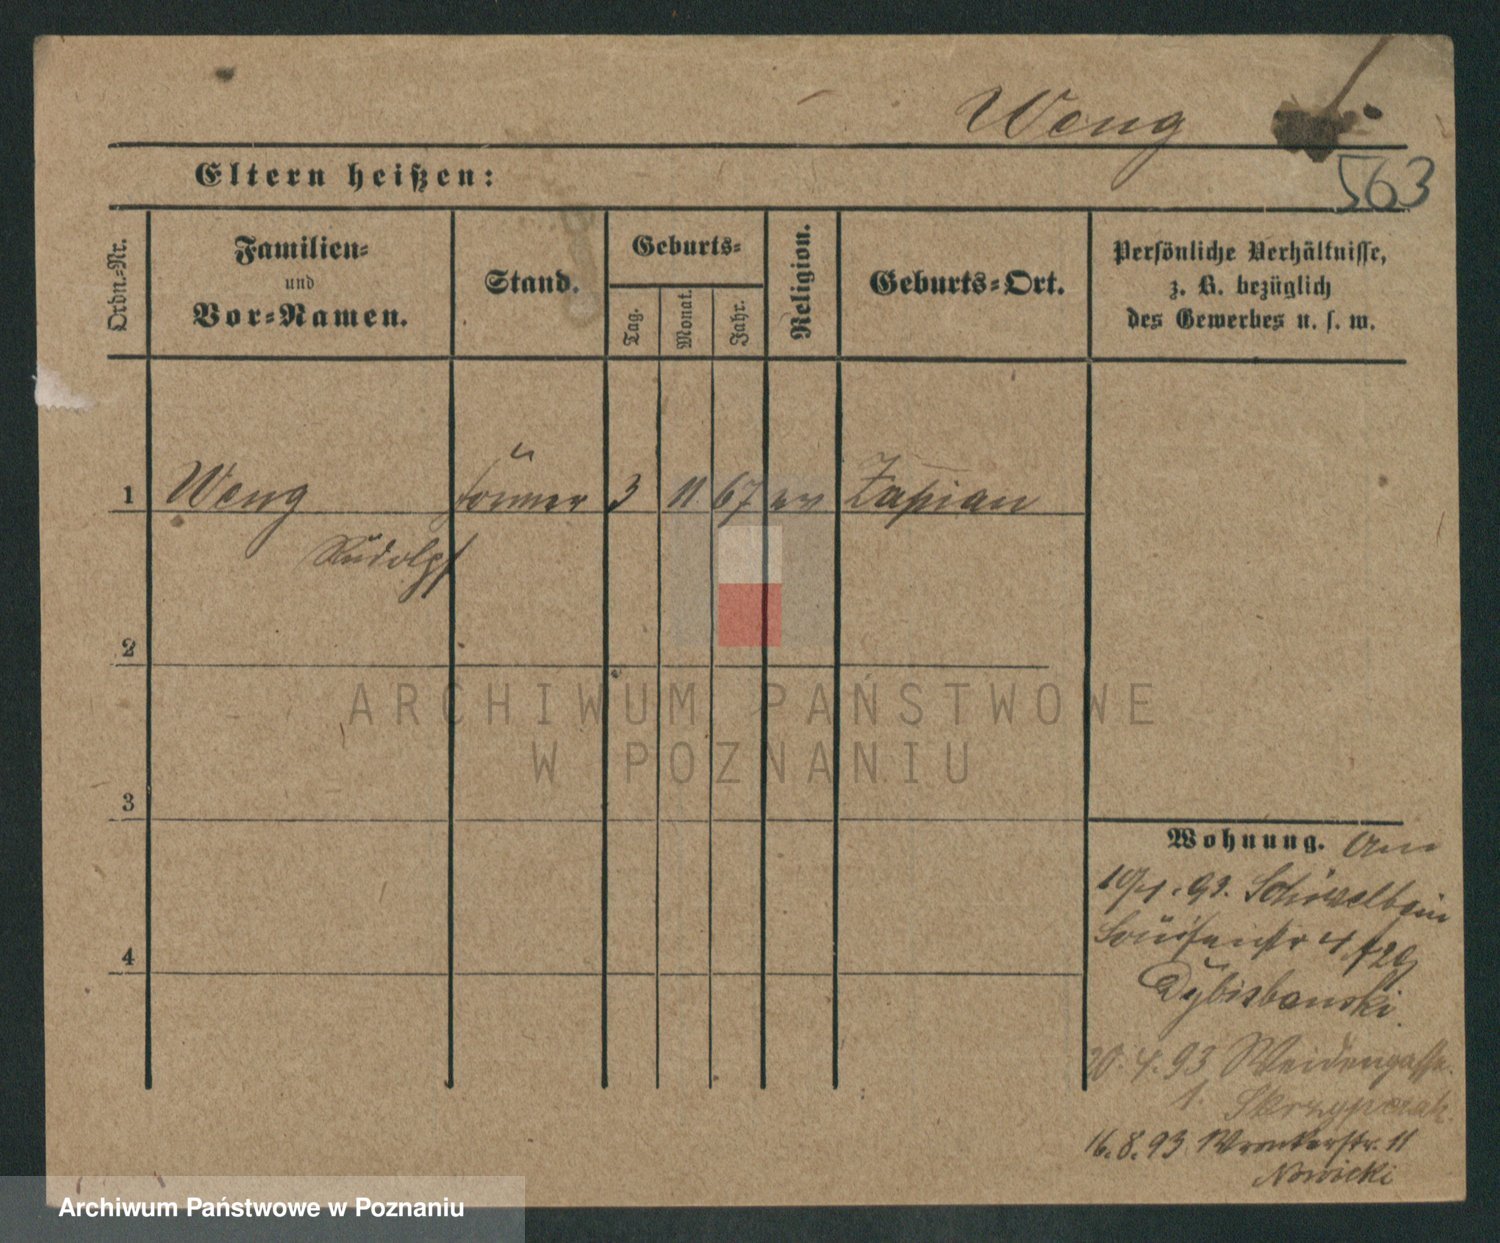 Weng
563
Eltern heißen:
Ordn.-Nr.
Familien-
und
Vor-Namen.
Stand.
Geburts-
Tag.
Monat.
Jahr.
Religion.
Geburts-Ort.
Persönliche Verhältnisse,
z. B. bezüglich
des Gewerbes u. s. w.
1 Weng 3 11 67 ev Zapian
Rudolph
2
3
4
Wohnung. Am
93. Schivelbein
Louisenstr 4
20.4.93 Weidengasse
1. Skrzypczak
16.8.93 Wronkerstr. 11
Nowicki
ARCHIWUM PAŃSTWOWE
W POZNANIU
Archiwum Państwowe w Poznaniu